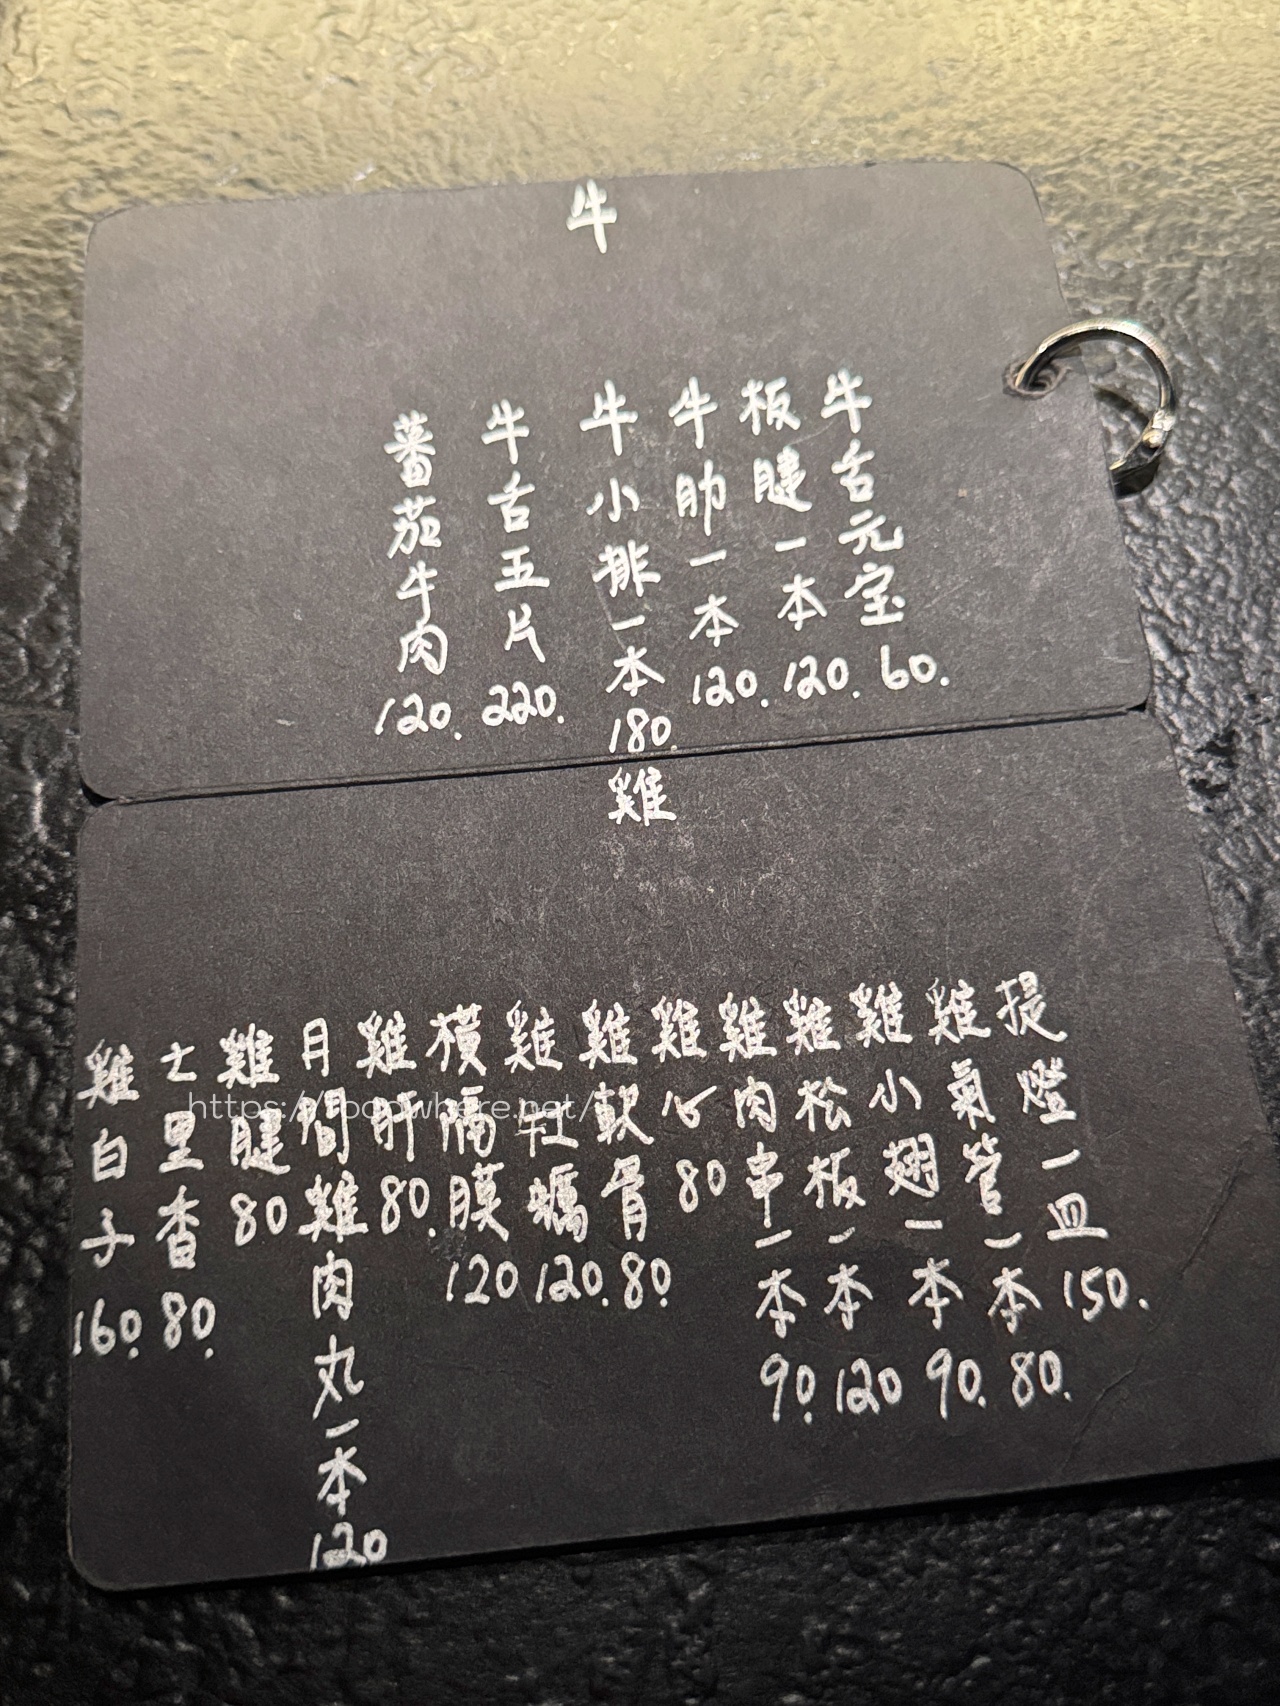 牛
牛舌元宝60.
板腱一本120.
牛肋一本120.
牛小排一本180.
牛舌五片220.
蕃茄牛肉120.
雞
提燈一皿150.
雞氣管一本80.
雞小翅一本90.
雞松板一本120
雞肉串一本90.
雞心80
雞軟骨80.
雞牡蠣120.
橫隔膜120
雞肝80.
月間雞肉丸一本120
雞腱80
七里香80.
雞白子160.